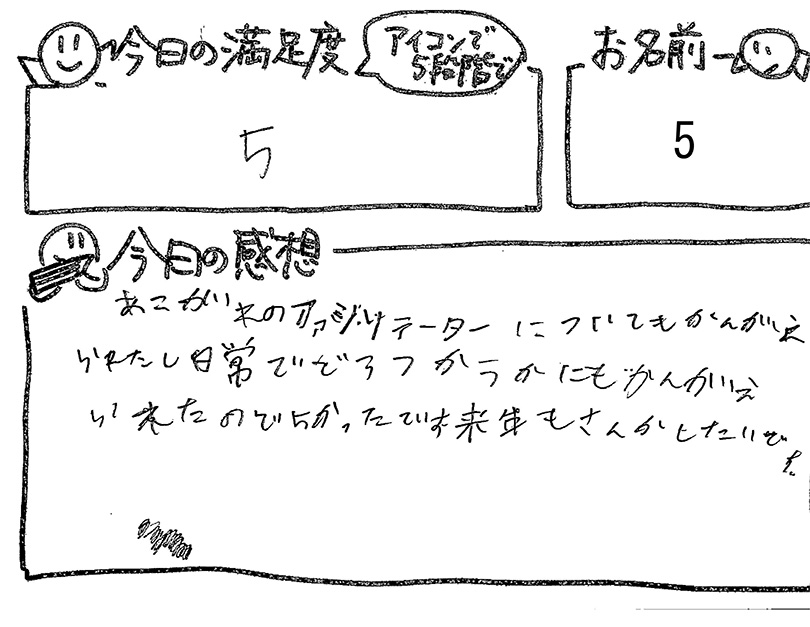 今日の満足度
アイコンで
5段階で
お名前
5
5
今日の感想
あこがれのファシリテーターについてもかんがえ
られたし日常でどろつかうかにもかんがえ
られたのでよかったです来年もさんかしたいで
す。